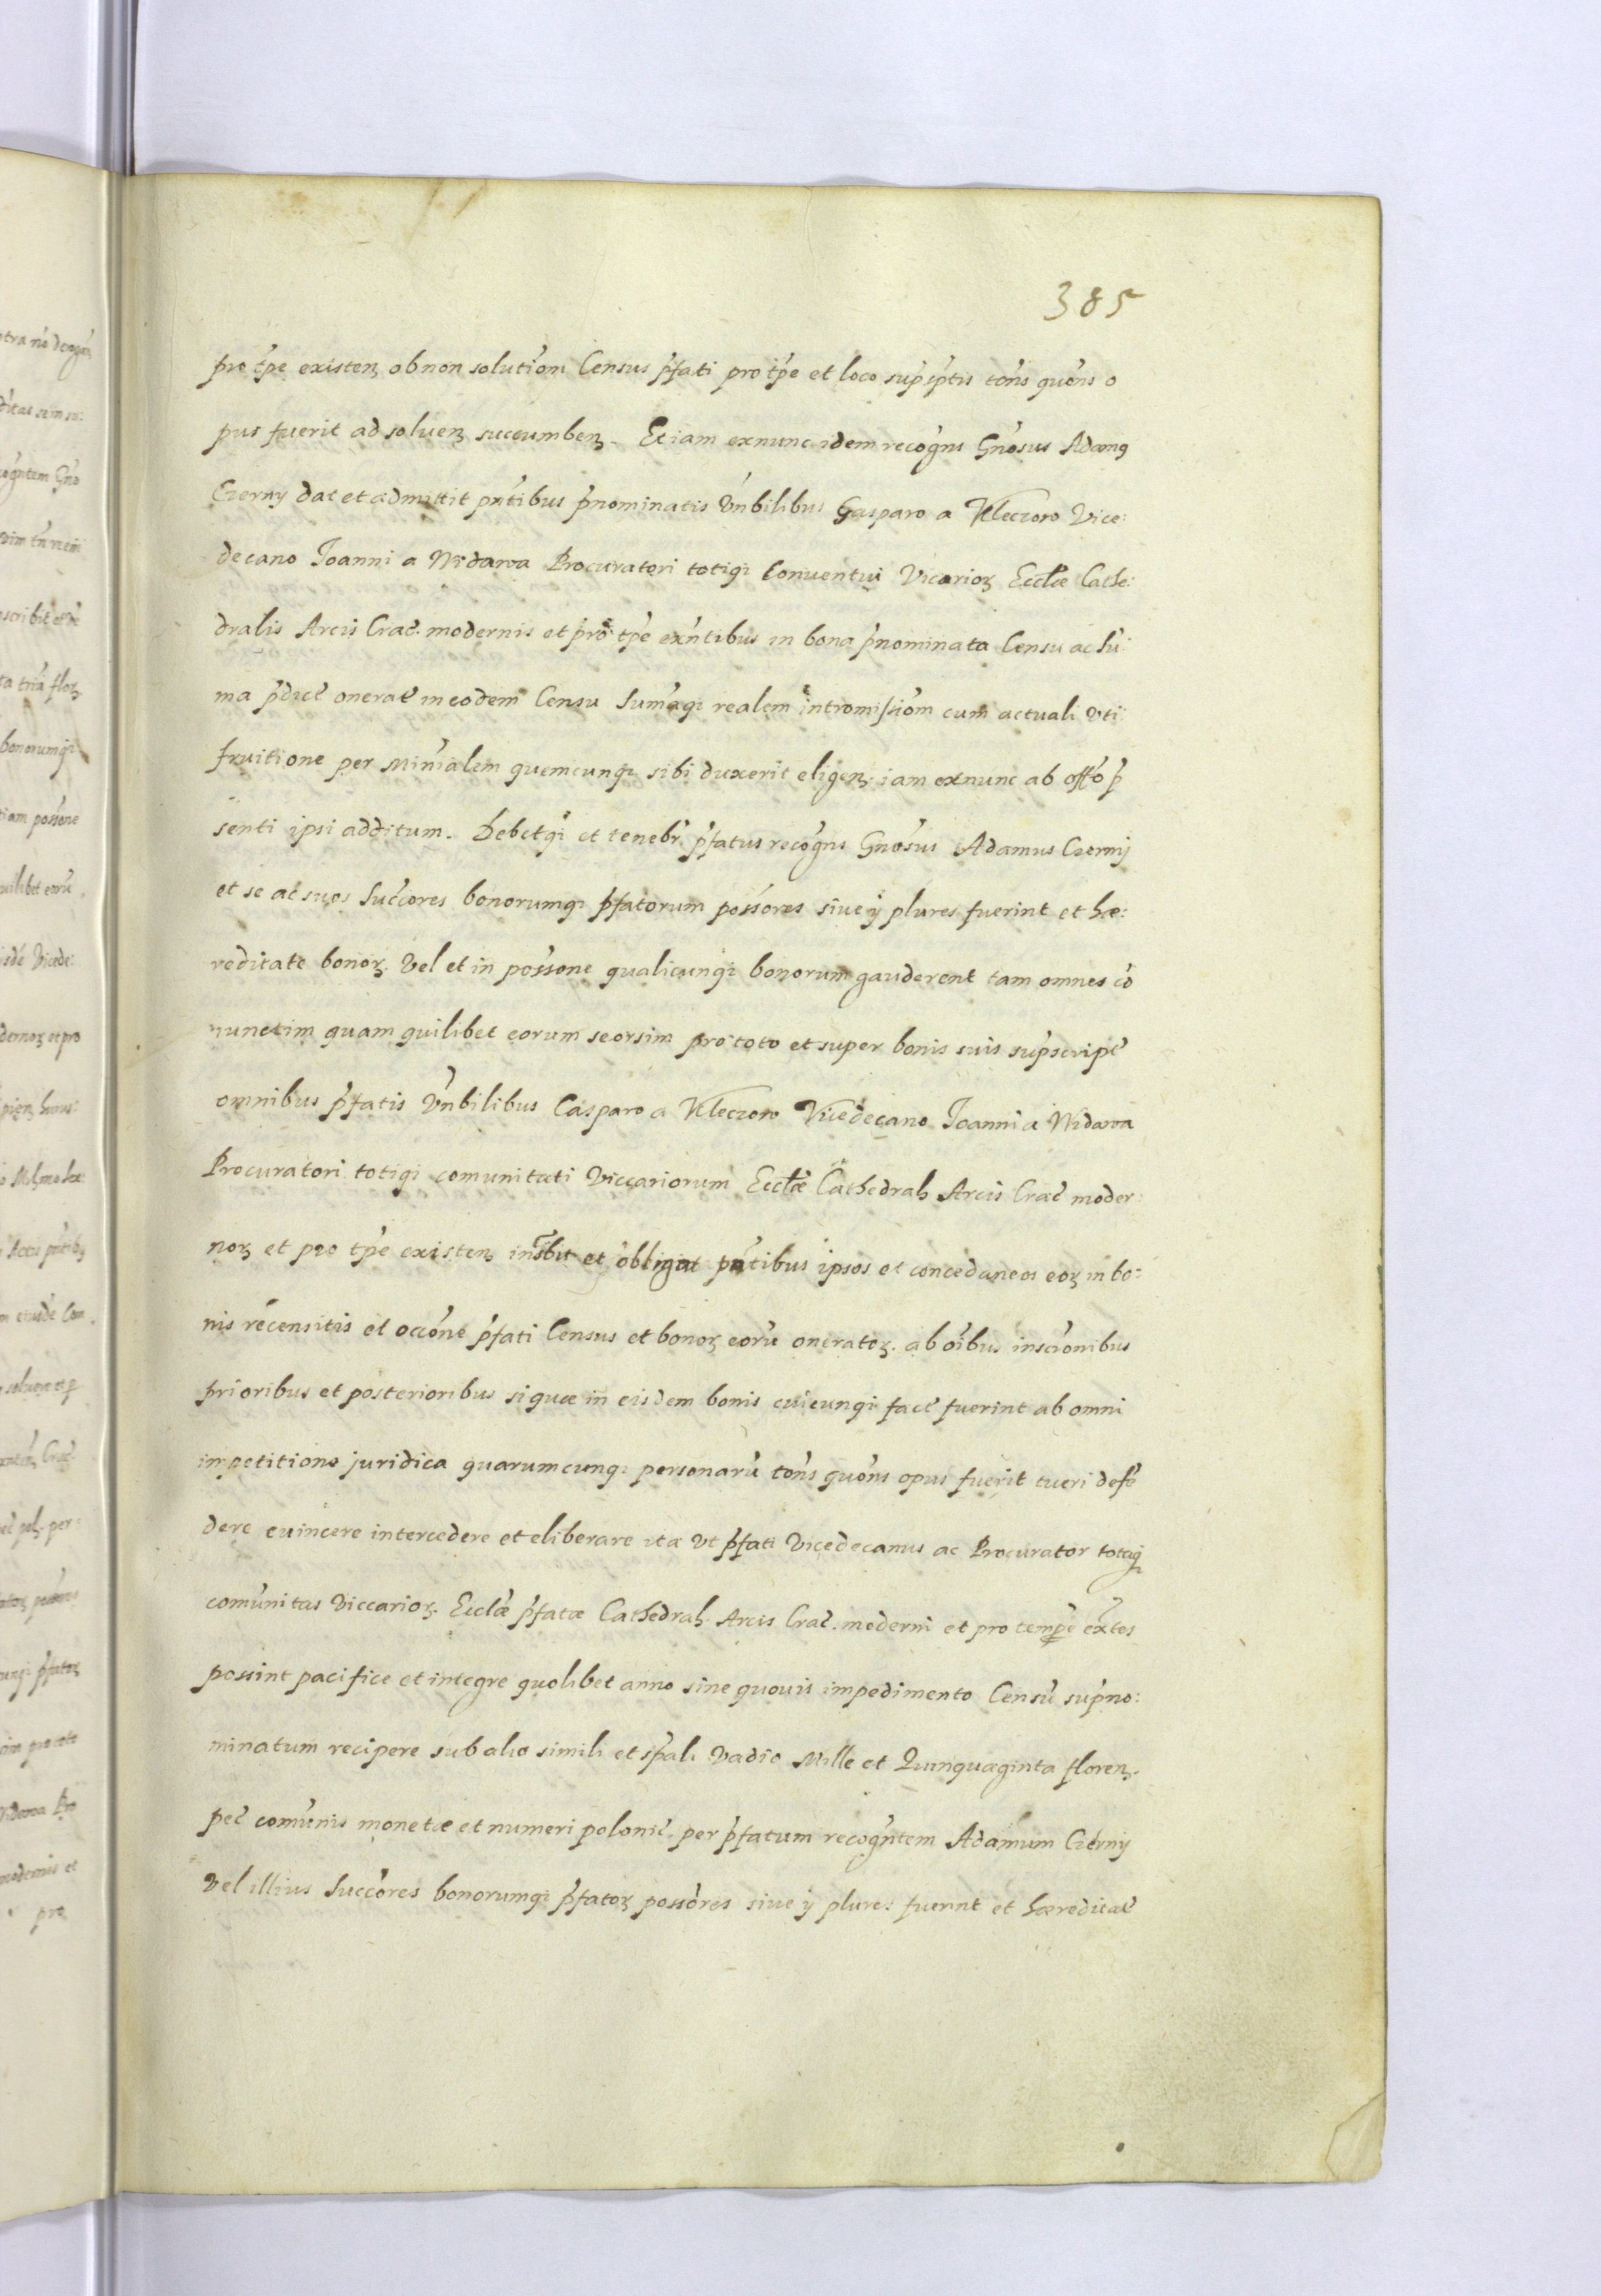 385
pro tp̃e existen̨ ob non solutiõm Census p̃fati pro tp̃e et loco sup̃sc̃ptis tõns quõns o
pus fuerit ad soluen̨ succumben̨. Et iam exnunc idem recog̃ns Gñosus Adamꝯ
Czerny dat et admittit pñtibus p̃nominatis Vñbilibus Gasparo a Kleczoro Vice:
decano Joanni a Widawa Procuratori totiqꝫ Conuentui Vicarioꝝ Eccl̃æ Cathe:
dralis Arcis Crac̃. modernis et pro tp̃e exñtibus in bona p̃nominata Censu ac Su:
ma p̃dict̃ onerat̃ in eodem Censu Sum̃aqꝫ realem intromissiõm cum actuali Vti
fruitione per Minĩalem quemcunqꝫ sibi duxerit eligen̨. iam exnunc ab offõ p̃
senti ipsi additum. Debetqꝫ et tenebr̃ p̃fatus recog̃ns Gñosus Adamus Czerny
et se ac suos Succ̃ores bonorumqꝫ p̃fatorum poss̃ores siue ÿ plures fuerint et hæ:
reditate bonoꝝ. Vel et in poss̃one qualicunqꝫ bonorum gauderent tam omnes cõ
iunctim quam quilibet eorum seorsim pro toto et super bonis suis sup̃script̃
omnibus p̃fatis Vñbilibus Casparo a Kleczoro Vicedecano Joanni a Widawa
Procuratori totiqꝫ comunitati Viccariorum Eccl̃æ Cathedral̨ Arcis Crac̃ moder:
noꝝ et pro tp̃e existen̨ inscr̃bit et obligat pñtibus ipsos et concedaneos eoꝝ in bo:
nis recensitis et occõne p̃fati Census et bonoꝝ eorũ oneratoꝝ. ab oĩbus inscr̃onibus
prioribus et posterioribus si quæ in eisdem bonis cuicunqꝫ fact̃ fuerint ab omni
inpetitione juridica quarumcunqꝫ personarũ tõns quõns opus fuerit tueri defẽ
dere euincere intercedere et eliberare ita Vt p̃fati Vicedecanus ac Procurator totaqꝫ
comũnitas Viccarioꝝ. Eccl̃æ p̃fatæ Cathedral̨. Arcis Crac̃. moderni et pro temp̃e ex̃tes
possint pacifice et integre quolibet anno sine quouis impedimento Censũ sup̃no:
minatum recipere sub alio simili et sp̃ali Vadio Mille et Quinquaginta floren̨.
pec̃ comũnis monetæ et numeri polonic̃. per p̃fatum recog̃ntem Adamum Czerny
Vel illius Succ̃ores bonorumqꝫ p̃fatoꝝ poss̃ores siue ÿ plures fuerint et hæreditat̃